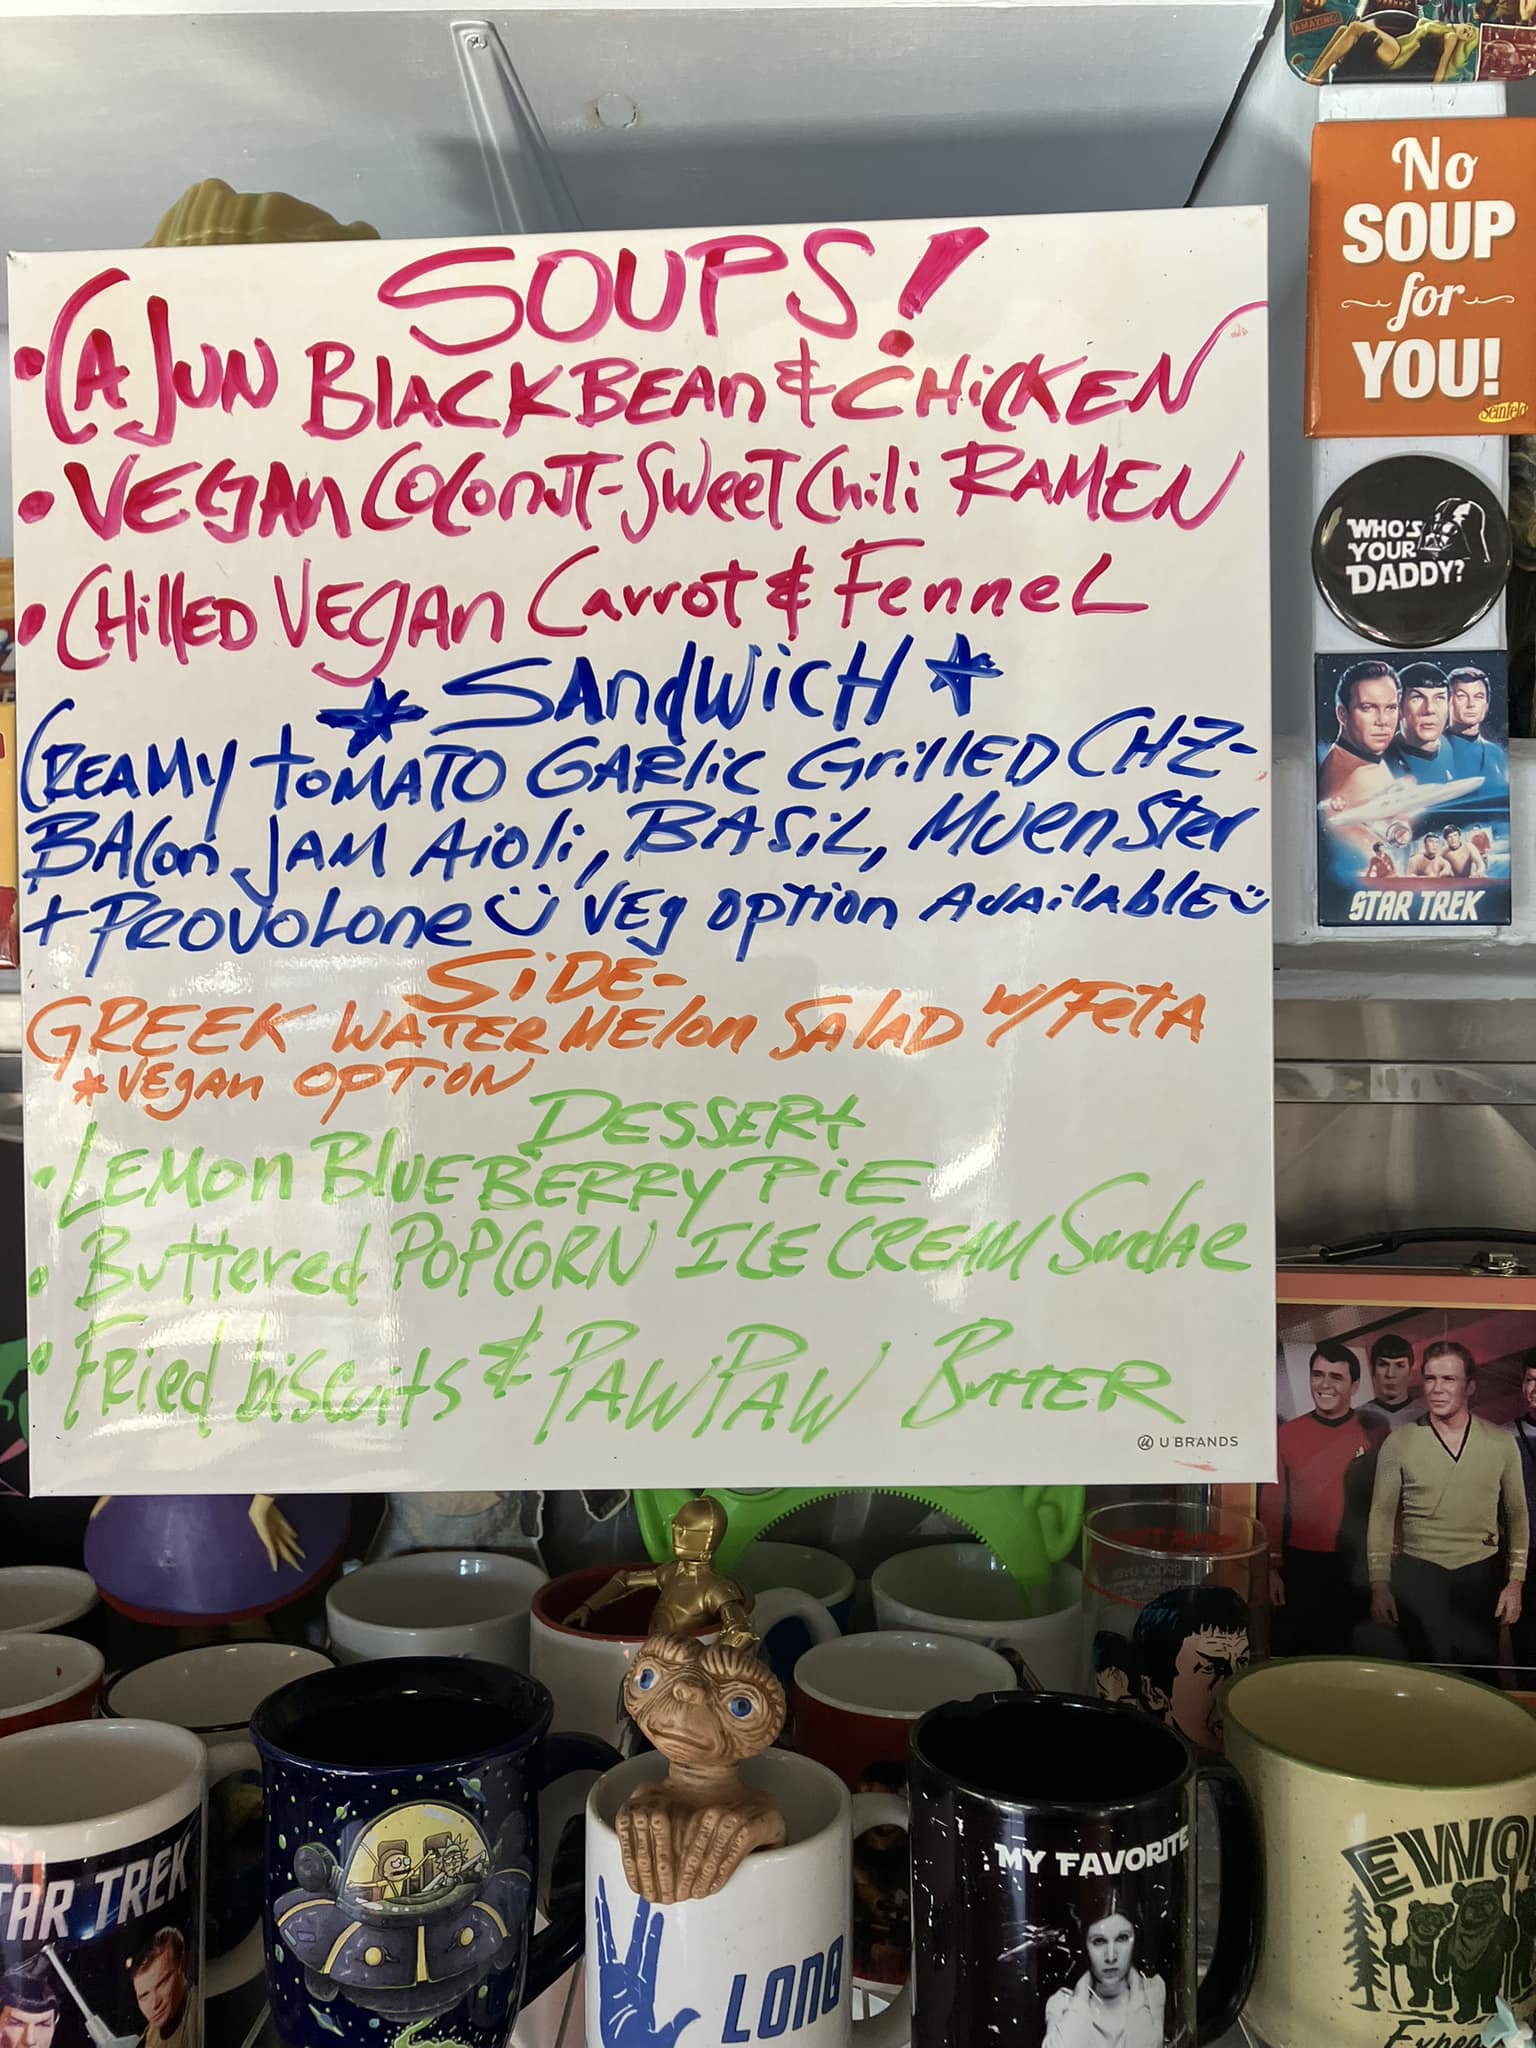 AMAZING
SOUPS!
• CAJUN BLACKBEAn & CHiCKEN
• VEGAn COCOnUT-SweeT Chili RAMEN
• CHillED VEGAn Carrot & FenneL
* SAndWicH *
CREAMY toMATO GARlic GrillED CHZ-
BACon JAM Aioli, BASiL, MUenSter
+ PROVOLone VEg option AvAilAblE
SiDE-
GREEK WATERMElon SAlAD w/ FetA
*VEgAn OPTiON
DESSERt
• LEMon BlUEBERRY PiE
• Buttered POPCORN ICE CREAM SundAe
• FRied biscuits & PAWPAW BuTTER
U BRANDS
No
SOUP
for
YOU!
Seinfeld
WHO'S
YOUR
DADDY?
STAR TREK
TAR TREK
LONG
MY FAVORITE
EWO